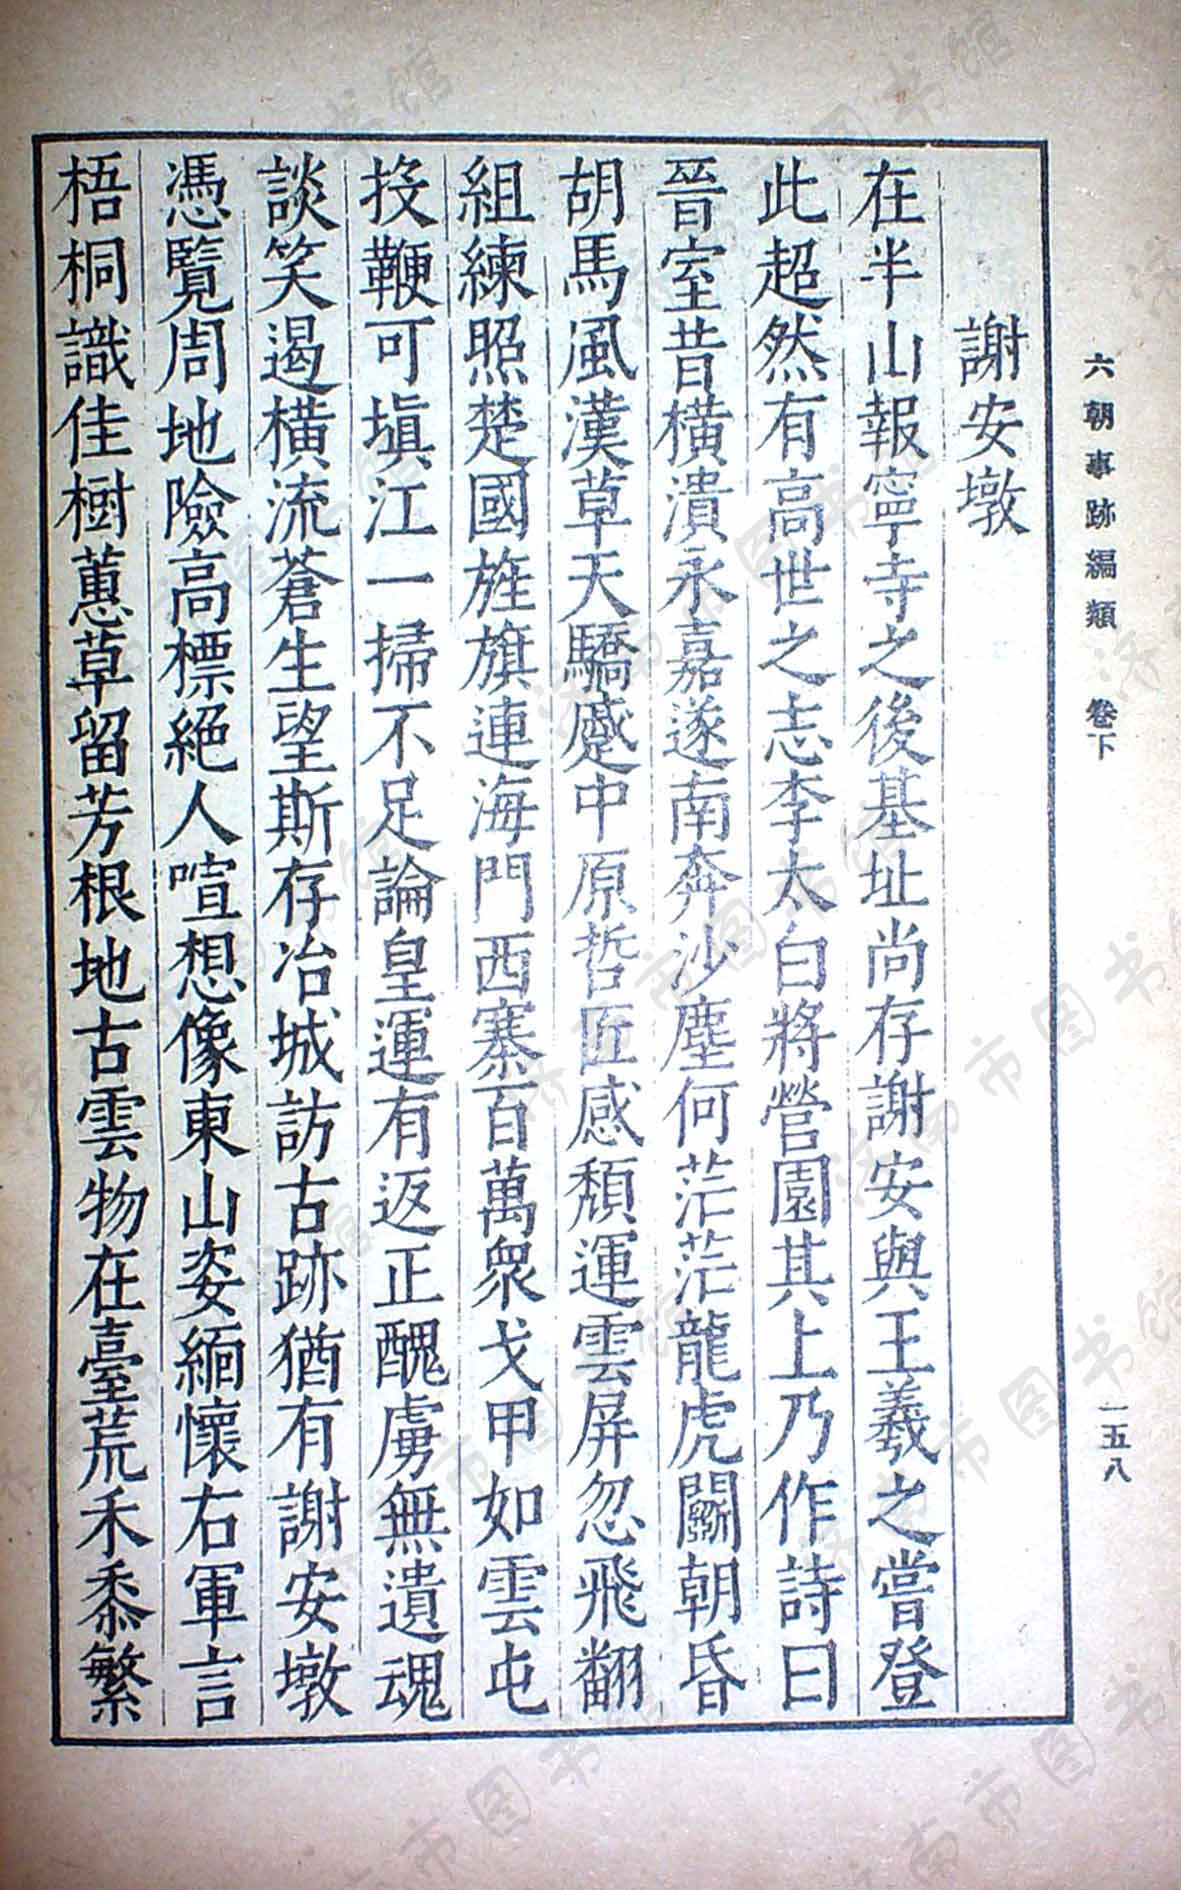 六朝事跡編類 卷下 一五八
謝安墩
在半山報寧寺之後基址尚存謝安與王羲之嘗登
此超然有高世之志李太白將營園其上乃作詩曰
晉室昔橫潰永嘉遂南奔沙塵何茫茫龍虎鬭朝昏
胡馬風漢草天驕蹙中原哲匠感頹運雲屏忽飛翻
組練照楚國旌旗連海門西寨百萬衆戈甲如雲屯
投鞭可塡江一掃不足論皇運有返正醜虜無遺魂
談笑遏橫流蒼生望斯存冶城訪古跡猶有謝安墩
憑覽周地險高標絕人喧想像東山姿緬懷右軍言
梧桐識佳樹蕙草留芳根地古雲物在臺荒禾黍繁